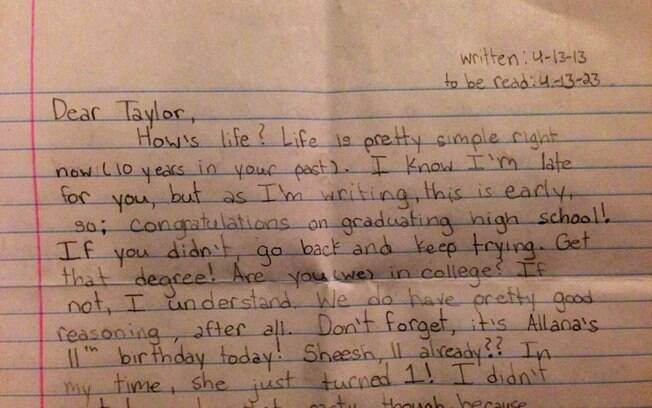 written: 4-13-13
to be read: 4-13-23
Dear Taylor,
How's life? Life is pretty simple right
now (10 years in your past). I know I'm late
for you, but as I'm writing, this is early,
so; congratulations on graduating high school!
If you didn't, go back and keep trying. Get
that degree! Are you (we) in college? If
not, I understand. We do have pretty good
reasoning, after all. Don't forget, it's Allana's
11th birthday today! Sheesh, 11 already?? In
my time, she just turned 1! I didn't
party though because